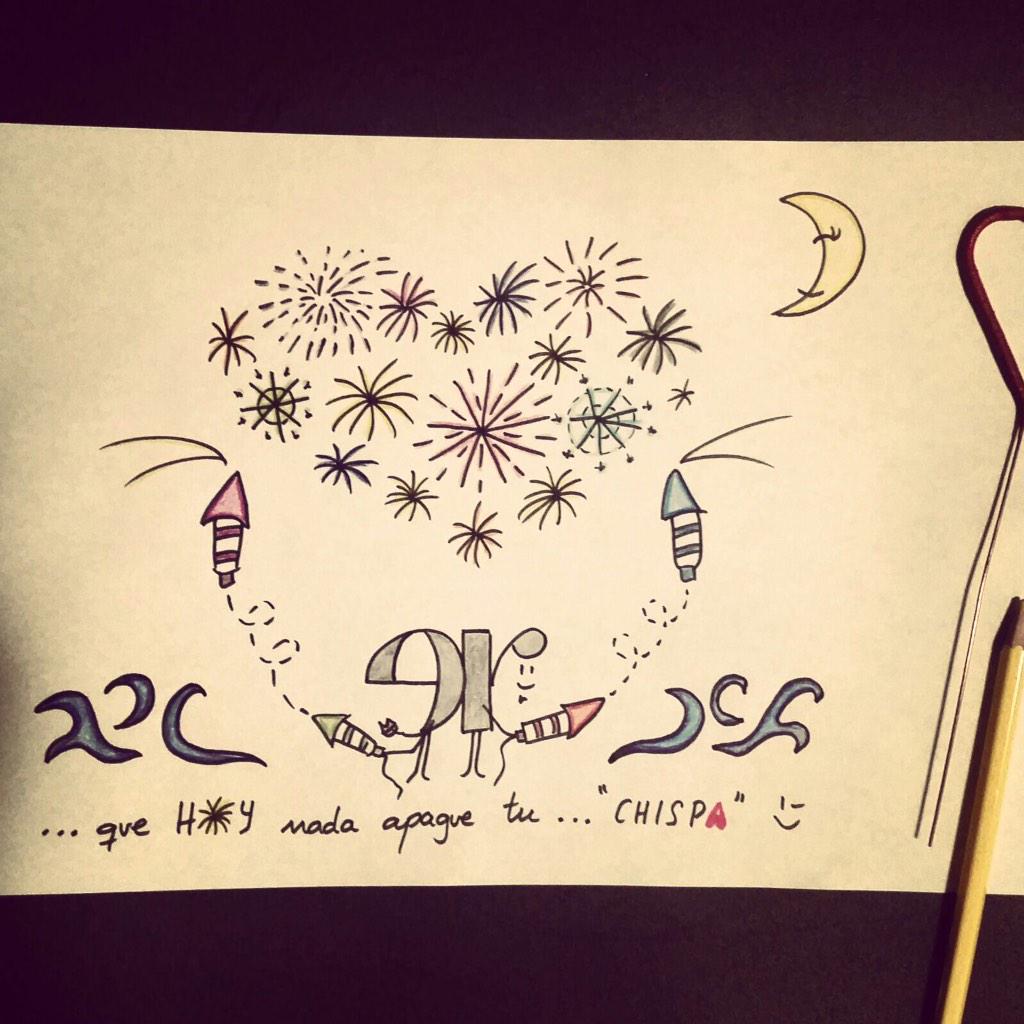 ... que HOY nada apague tu ... "CHISPA"